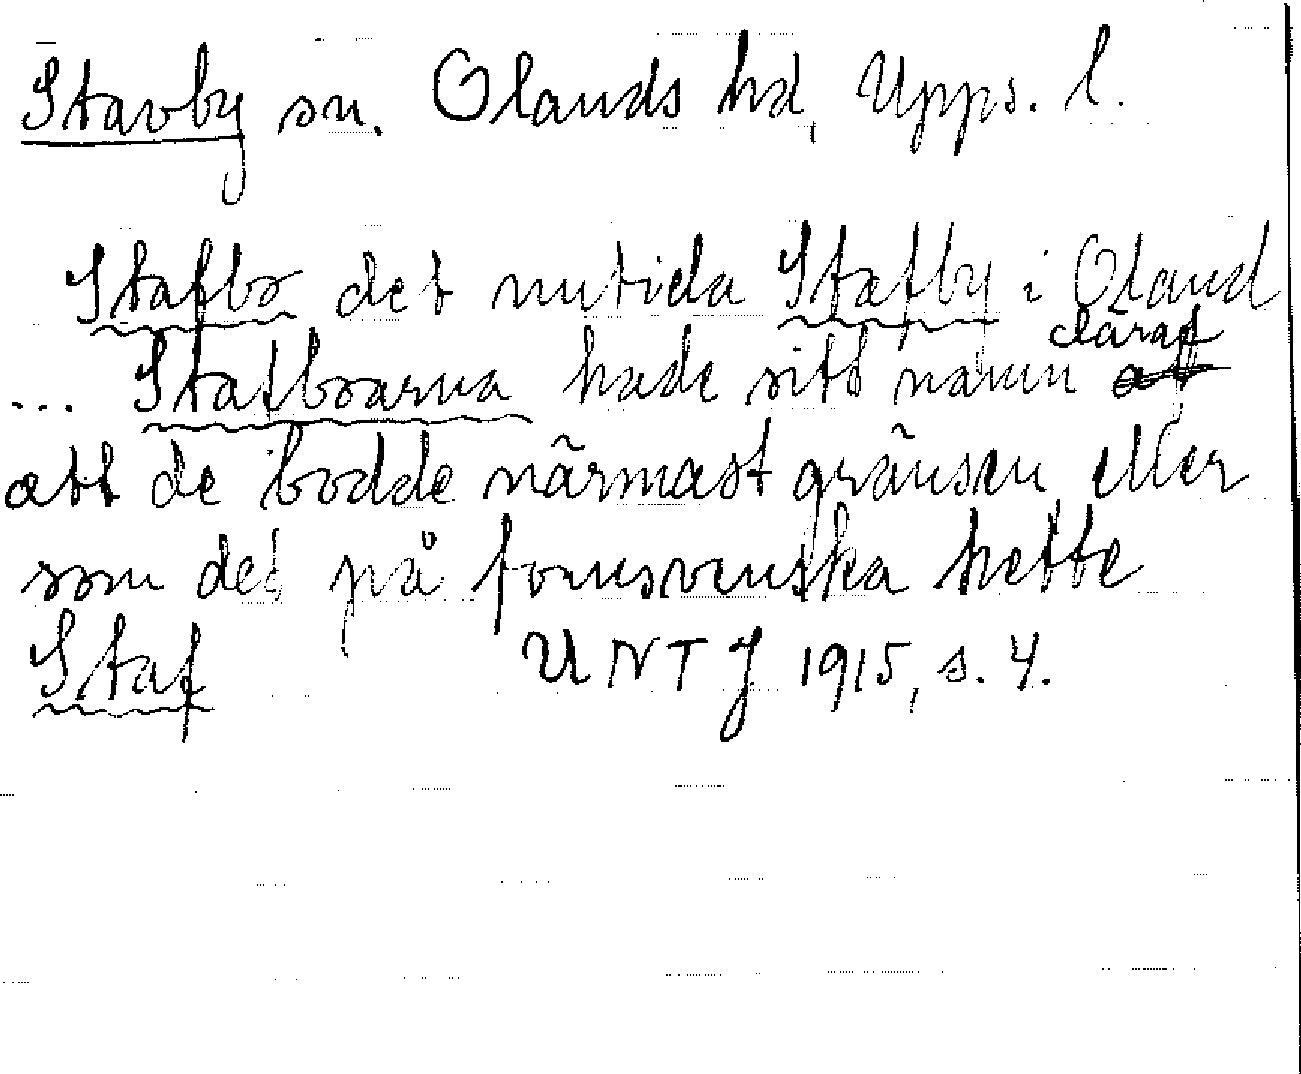 Stavby sn. Olands hd, Upps. l.
Stafbo det nutida Stafby i Oland
... Stafboarna hade sitt namn däraf
att de bodde närmast gränsen eller
som det på fornsvenska hette
Staf UNTJ 1915, s. 4.